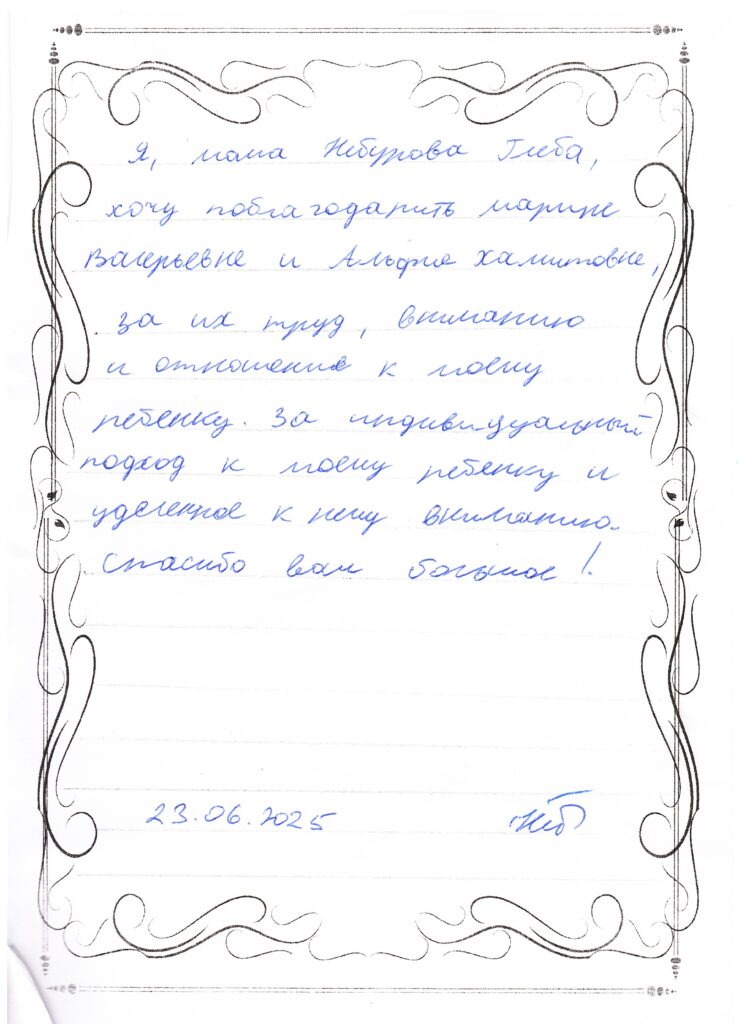 Я, мама Небурова Глеба,
хочу поблагодарить марине
Валерьевне и Альфие Хамитовне,
за их труд, вниманию
и отношение к моему
ребенку. За индивидуальный
подход к моему ребенку и
уделенное к нему вниманию.
Спасибо вам большое!
23.06.2025